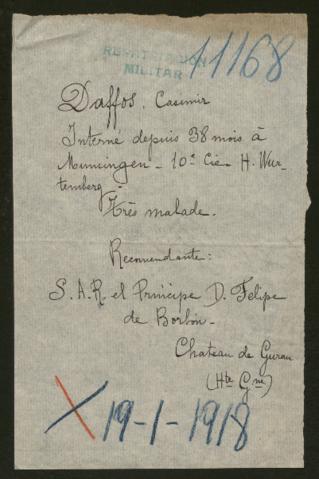 REPATRIACION
MILITAR
11168
Daffos, Casimir
Interné depuis 38 mois à
Munsingen - 10e Cie H. Wur-
temberg -
Très malade.
Recomendante:
S. A. R. el Príncipe D. Felipe
de Borbón -
Chateau de Gurau
(Hte Gne)
X 19-1-1918